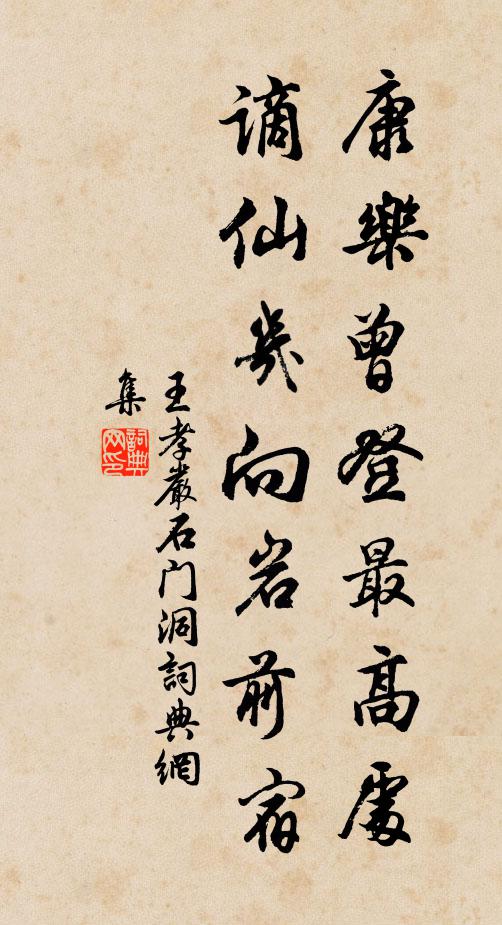 康樂曾登最高處
謫仙幾向岩前宿
王孝嚴石门洞詞典網
集
詞典
网印